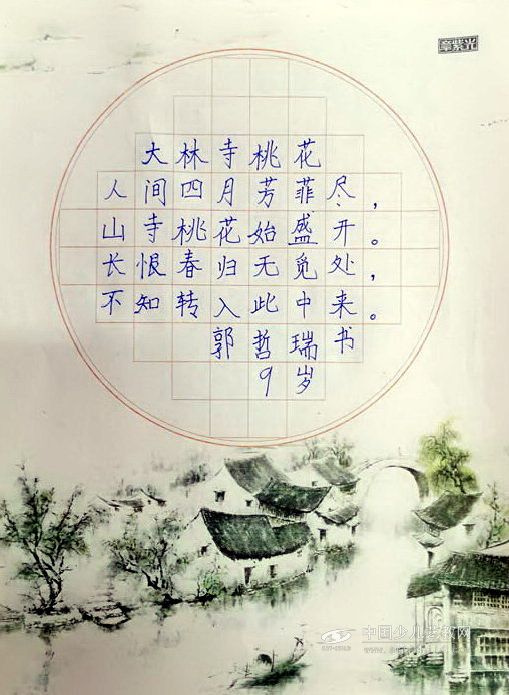 大林寺桃花
人间四月芳菲尽，
山寺桃花始盛开。
长恨春归无觅处，
不知转入此中来。
郭哲瑞书
9岁
中国少儿艺教网